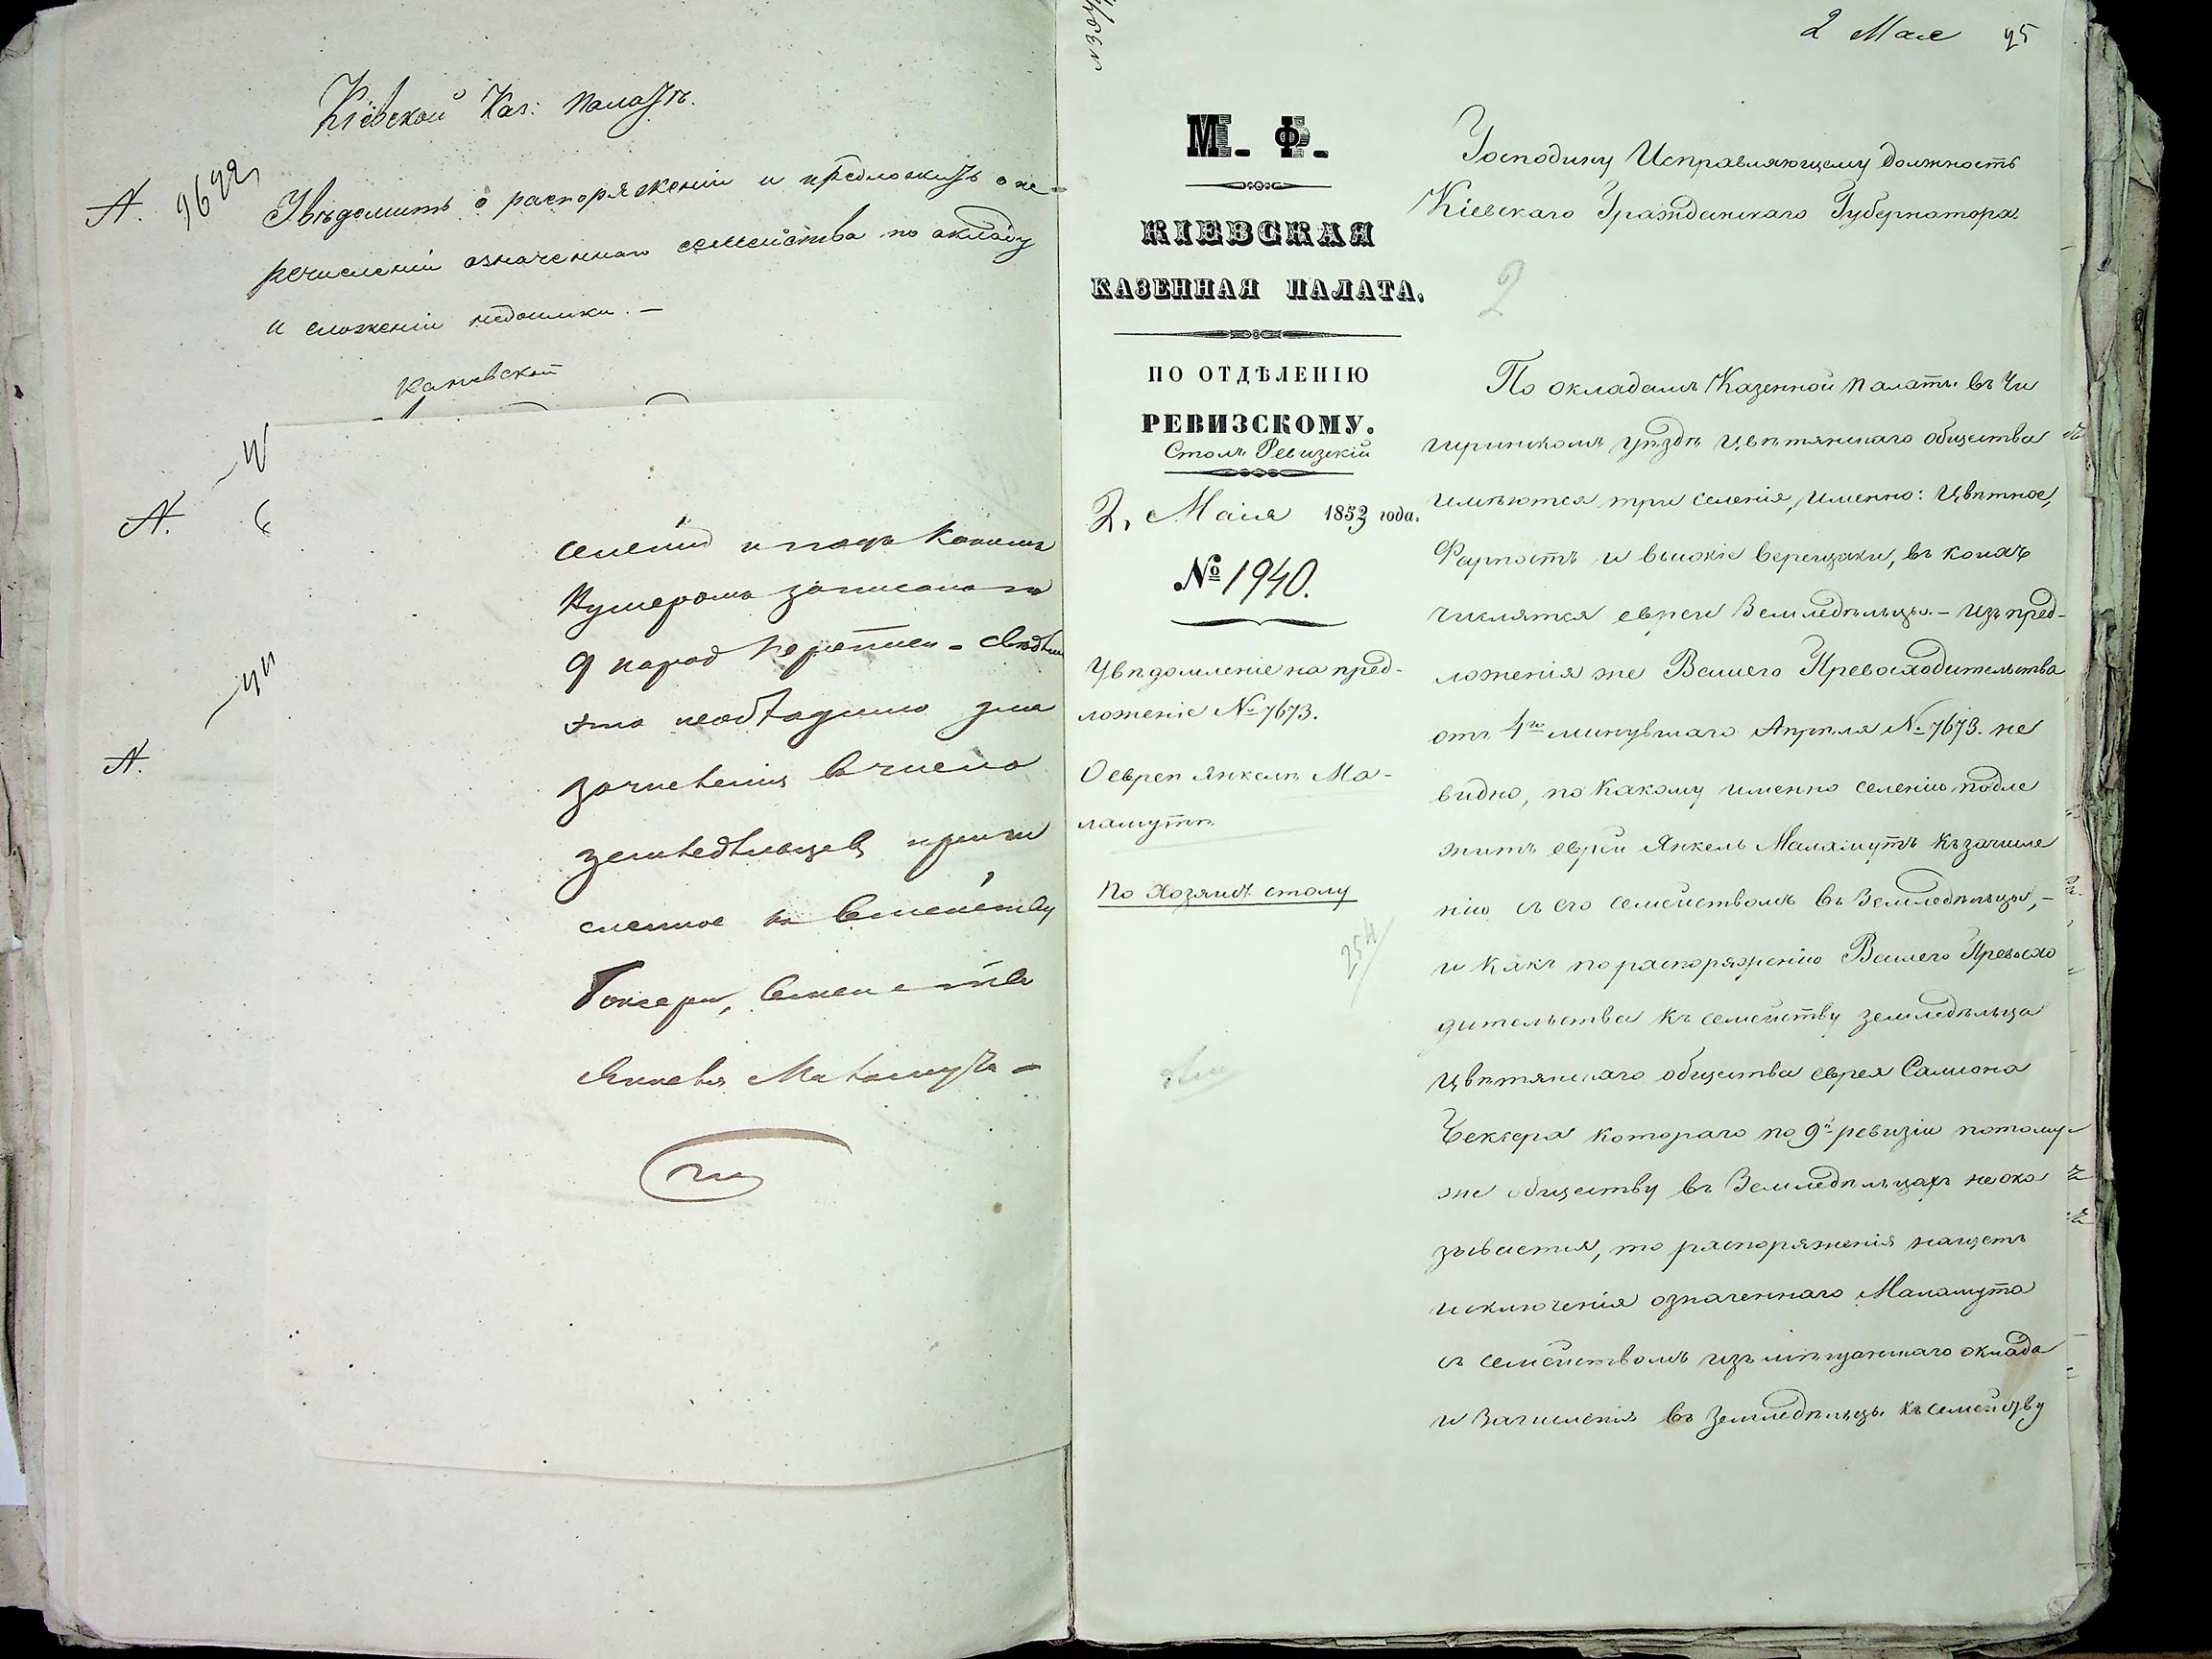 Кіевской Каз: Палатѣ.
Увѣдомить о распоряженіи и предложить о пе-
речисленіи означеннаго семейства по окладу
и сложеніи недоимки. —
Каневской
селенія и подъ какимъ
Нумеромъ записано по
9 народ переписи - свѣдѣн
это необходимо для
зачисленія въ число
земледѣльцевъ причи
сленное къ Семейству
Семейство
Янкеля Маламута -
2 Мая 95
М. Ф.
КІЕВСКАЯ
КАЗЕННАЯ ПАЛАТА.
ПО ОТДѢЛЕНІЮ
РЕВИЗСКОМУ.
Столъ Ревизскій
2, Маія 1853 года.
№ 1940.
Увѣдомленіе на пред-
ложеніе № 7673.
О евреѣ Янкелѣ Ма-
ламутѣ
По Хозяйс. столу
254
Господину Исправляющему должность
Кіевскаго Гражданскаго Губернатора.
2
По окладамъ Казенной Палаты въ Чи
гиринскомъ уѣздѣ Цвѣтянскаго общества
имѣются три селенія, именно: Цвѣтное,
Фарпостъ и высокіе верещаки, въ коихъ
числятся евреи Земледѣльцы. - Изъ пред-
ложенія же Вашего Превосходительства
отъ 4го минувшаго Апрѣля № 7673. не
видно, по какому именно селенію подле
житъ еврей Янкель Маламутъ къ зачисле
нію съ его семействомъ въ Земледѣльцы, -
и какъ по распоряженію Вашего Превосхо
дительства къ семейству земледѣльца
Цвѣтянскаго общества еврея Самсона
Бексера котораго по 9й ревизіи по тому
же обществу въ Земледѣльцахъ не ока
зывается, то распоряженія насчетъ
исключенія означеннаго Маламута
съ семействомъ изъ мѣщанскаго оклада
и зачисленія въ Земледѣльцы къ семейству